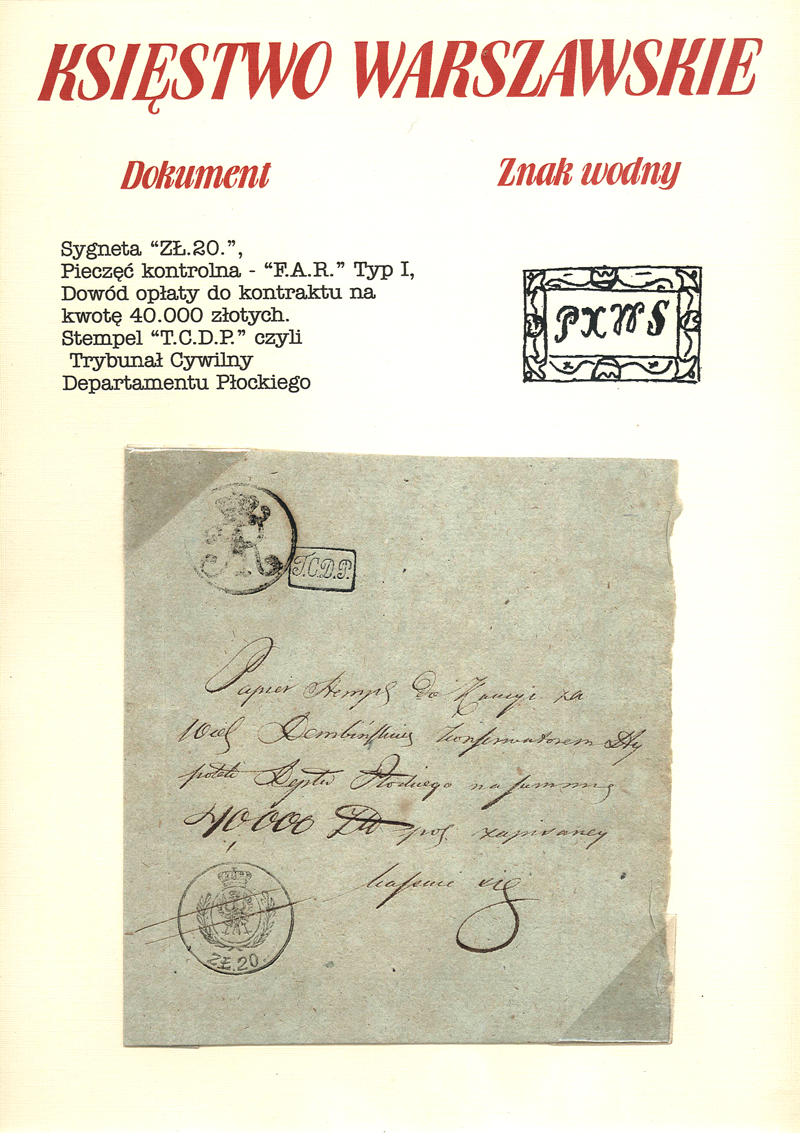 KSIĘSTWO WARSZAWSKIE
Dokument
Znak wodny
Sygneta “ZŁ.20.”,
Pieczęć kontrolna - “F.A.R.” Typ I,
Dowód opłaty do kontraktu na
kwotę 40.000 złotych.
Stempel “T.C.D.P.” czyli
Trybunał Cywilny
Departamentu Płockiego
PXWS
T.C.D.P.
Papier Stempl do Kaucyi za
Dembińskim Konserwatorem Hy
poteki Deptu Płockiego na summę
40,000 Zł pol zapisaney
kassuie się
ZŁ.20.